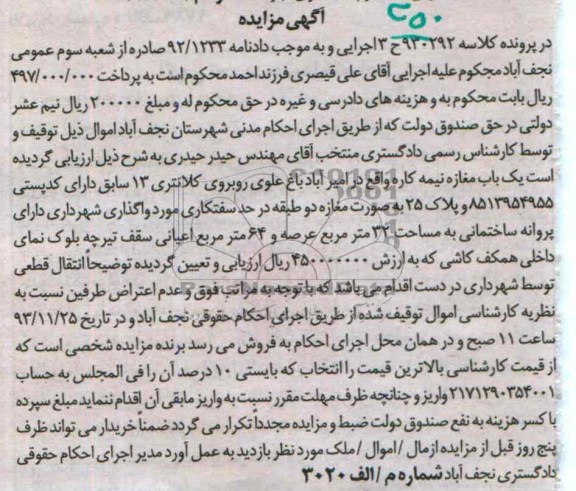 آگهی مزایده
در پرونده کلاسه ۹۳۰۲۹۲ ح ۳ اجرایی و به موجب دادنامه ۹۲/۱۲۳۳ صادره از شعبه سوم عمومی
نجف آباد محکوم علیه اجرایی آقای علی قیصری فرزند احمد محکوم است به پرداخت ۴۹۷/۰۰۰/۰۰۰
ریال بابت محکوم به و هزینه های دادرسی و غیره در حق محکوم له و مبلغ ۲۰۰۰۰۰ ریال نیم عشر
دولتی در حق صندوق دولت که از طریق اجرای احکام مدنی شهرستان نجف آباد اموال ذیل توقیف و
توسط کارشناس رسمی دادگستری منتخب آقای مهندس حیدر حیدری به شرح ذیل ارزیابی گردیده
است یک باب مغازه نیمه کاره واقع در امیر آباد باغ علوی روبروی کلانتری ۱۳ سابق دارای کدپستی
۸۵۱۳۹۵۴۹۵۵ و پلاک ۲۵ به صورت مغازه دو طبقه در حد سفتکاری مورد واگذاری شهرداری دارای
پروانه ساختمانی به مساحت ۳۲ متر مربع عرصه و ۶۴ متر مربع اعیانی سقف تیرچه بلوک نمای
داخلی همکف کاشی که به ارزش ۴۵۰۰۰۰۰۰۰ ریال ارزیابی و تعیین گردیده توضیحا انتقال قطعی
توسط شهرداری در دست اقدام می باشد که با توجه به مراتب فوق و عدم اعتراض طرفین نسبت به
نظریه کارشناسی اموال توقیف شده از طریق اجرای احکام حقوقی نجف آباد و در تاریخ ۹۳/۱۱/۲۵
ساعت ۱۱ صبح و در همان محل اجرای احکام به فروش می رسد برنده مزایده شخصی است که
از قیمت کارشناسی بالاترین قیمت را انتخاب که بایستی ۱۰ درصد آن را فی المجلس به حساب
۲۱۷۱۲۹۰۳۵۴۰۰۱ واریز و چنانچه ظرف مهلت مقرر نسبت به واریز مابقی آن اقدام ننماید مبلغ سپرده
با کسر هزینه به نفع صندوق دولت ضبط و مزایده مجددا تکرار می گردد ضمناً خریدار می تواند ظرف
پنج روز قبل از مزایده از مال /اموال /ملک مورد نظر بازدید به عمل آورد مدیر اجرای احکام حقوقی
دادگستری نجف آباد شماره م /الف ۳۰۲۰